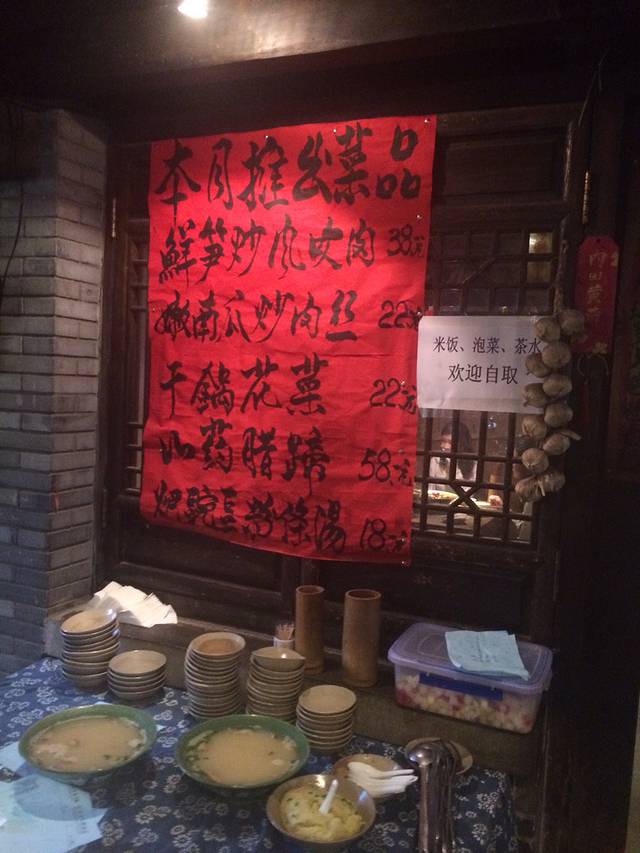 本月推出菜品
鮮笋炒风吹肉 38元
嫩南瓜炒肉丝 22元
干鍋花菜 22元
山药腊蹄 58元
粑豌豆滑條湯 18元
米饭、泡菜、茶水
欢迎自取